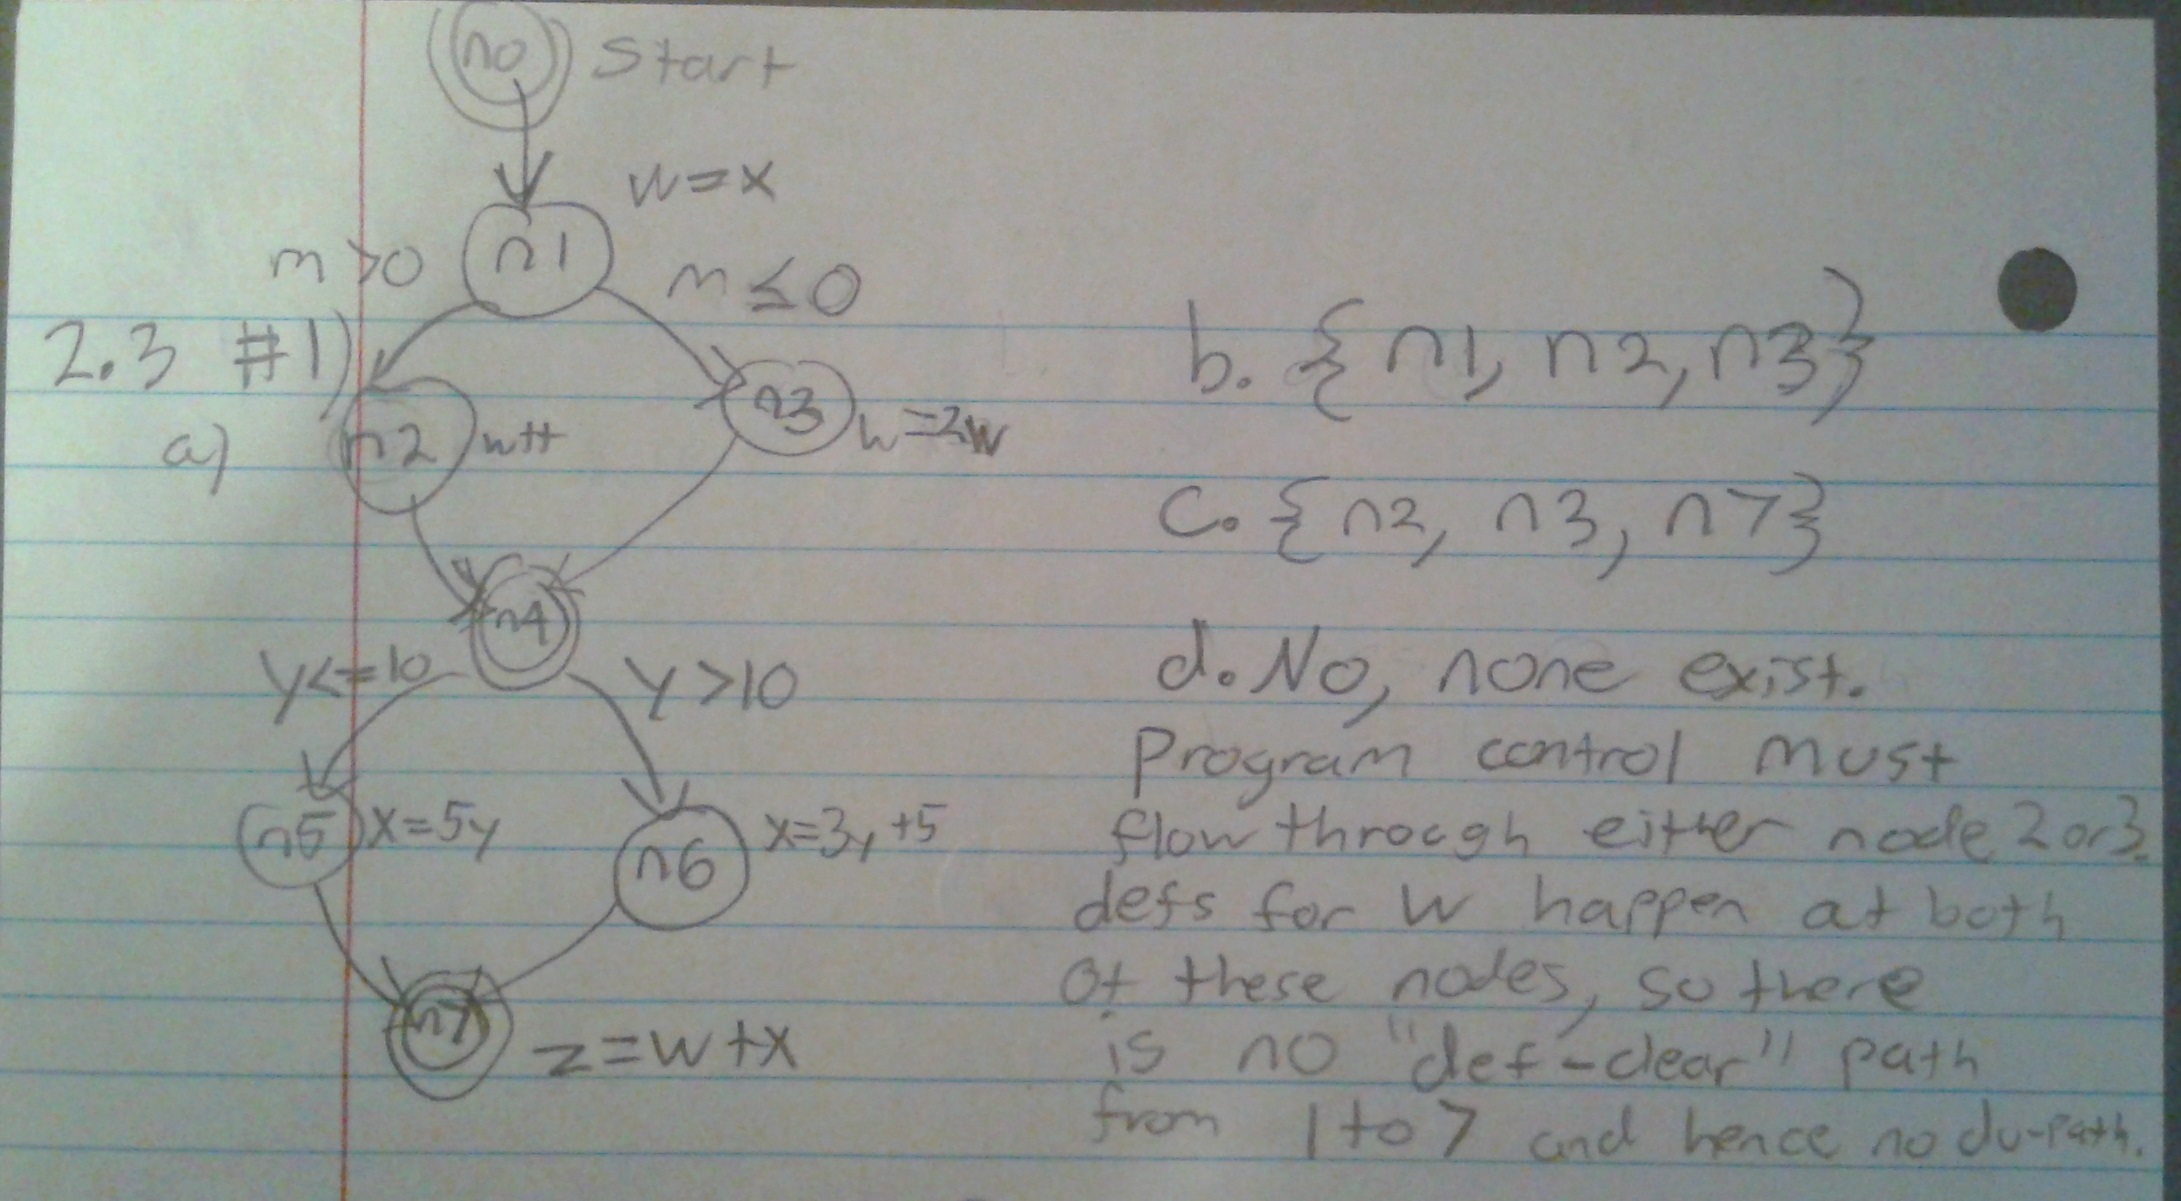 n0 start
w=x
m>0 n1 m≤0
2.3 #1)
n2 w++ n3 w=2w
a)
n4
y<=10 y>10
n5 x=5y n6 x=3y+5
n7 z=w+x
b. {n1, n2, n3}
c. {n2, n3, n7}
d. No, none exist.
Program control must
flow through either node 2 or 3.
defs for w happen at both
of these nodes, so there
is no "def-clear" path
from 1 to 7 and hence no du-path.